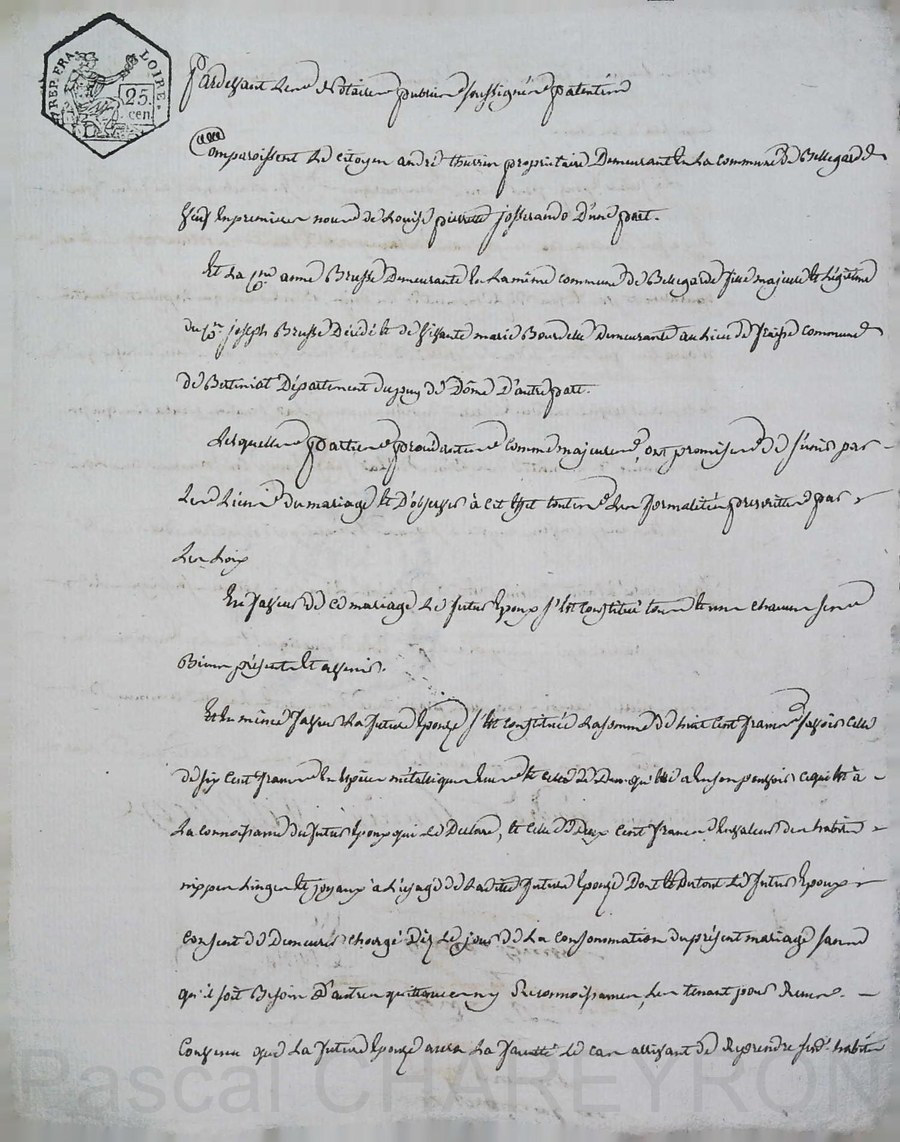 REP. FRA. LOIRE.
25.
cen.
Pardevant Les Notaires publics soussignés patentés
Comparoissent Le citoyen andré thurin propriétaire Demeurant En La commune de Bellegarde
Veuf En premieres noces de Louise pierrette josserand D'une part.
Et La c.ne anne Brusse Demeurante En La même commune de Bellegarde fille majeure Et Légitime
du c.en joseph Brusse Décédé Et de vivante marie Bourdelle Demeurante au Lieu de fraisse commune
de Bertiniat Département du puy de Dôme D'autre part.
Lesquelles parties procédantes comme majeures, ont promis de s'unir par
Les Liens du mariage Et D'observer à cet Effet toutes Les formalités prescrittes par
Les Loix
En faveur de ce mariage Le futur Epoux s'Est constitué tous Et uns chacuns ses
Biens présents Et avenir.
Et En même faveur La future Epouze s'Est constituée La somme de huit Cent francs savoir celle
de six Cent francs En Espèces métalliques qu'elle a En son pouvoir ce qui Est à
La connoissance du futur Epoux qui Le Déclare, Et celle de Deux Cent francs En valeur des habits
nippes Linges Et joyaux à L'usage de Ladite future Epouze Dont Et Du tout Le futur Epoux
Consent de Demeurer chargé Dès Le jour de La consommation du présent mariage sans
qu'il soit Besoin D'autres quittances ny Reconnoissances, Les tenant pour Reçues.
Convenu que La future Epouze aura La faculté Le cas arrivant de Reprendre ses d. habits
Pascal CHAREYRON